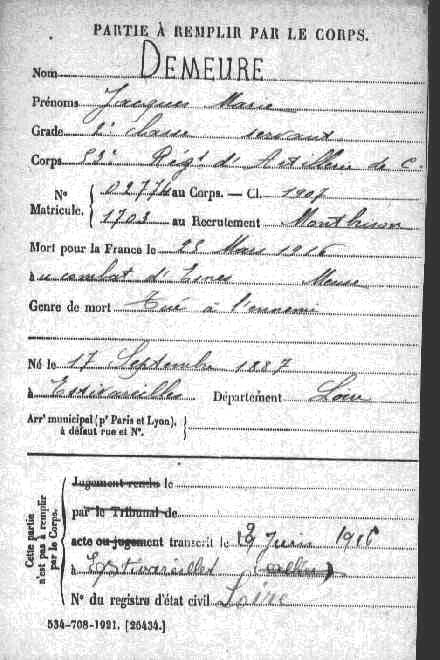 PARTIE À REMPLIR PAR LE CORPS.
Nom DEMEURE
Prénoms Jacques Marie
Grade 2e classe servant
Corps 53e Régt d'Artillerie de C.
No 02776 au Corps. — Cl. 1907
Matricule. 1703 au Recrutement Montbrison
Mort pour la France le 23 Mars 1916
à u combat d'Esnes Meuse
Genre de mort Tué à l'ennemi
Né le 17 Septembre 1887
à Estivareilles Département Loire
Arrt municipal (pr Paris et Lyon),
à défaut rue et No.
Cette partie
n'est pas à remplir
par le Corps.
Jugement rendu le
par le Tribunal de
acte ou jugement transcrit le 9 Juin 1916
à Estivareilles
No du registre d'état civil Loire
534-708-1921. [26434.]